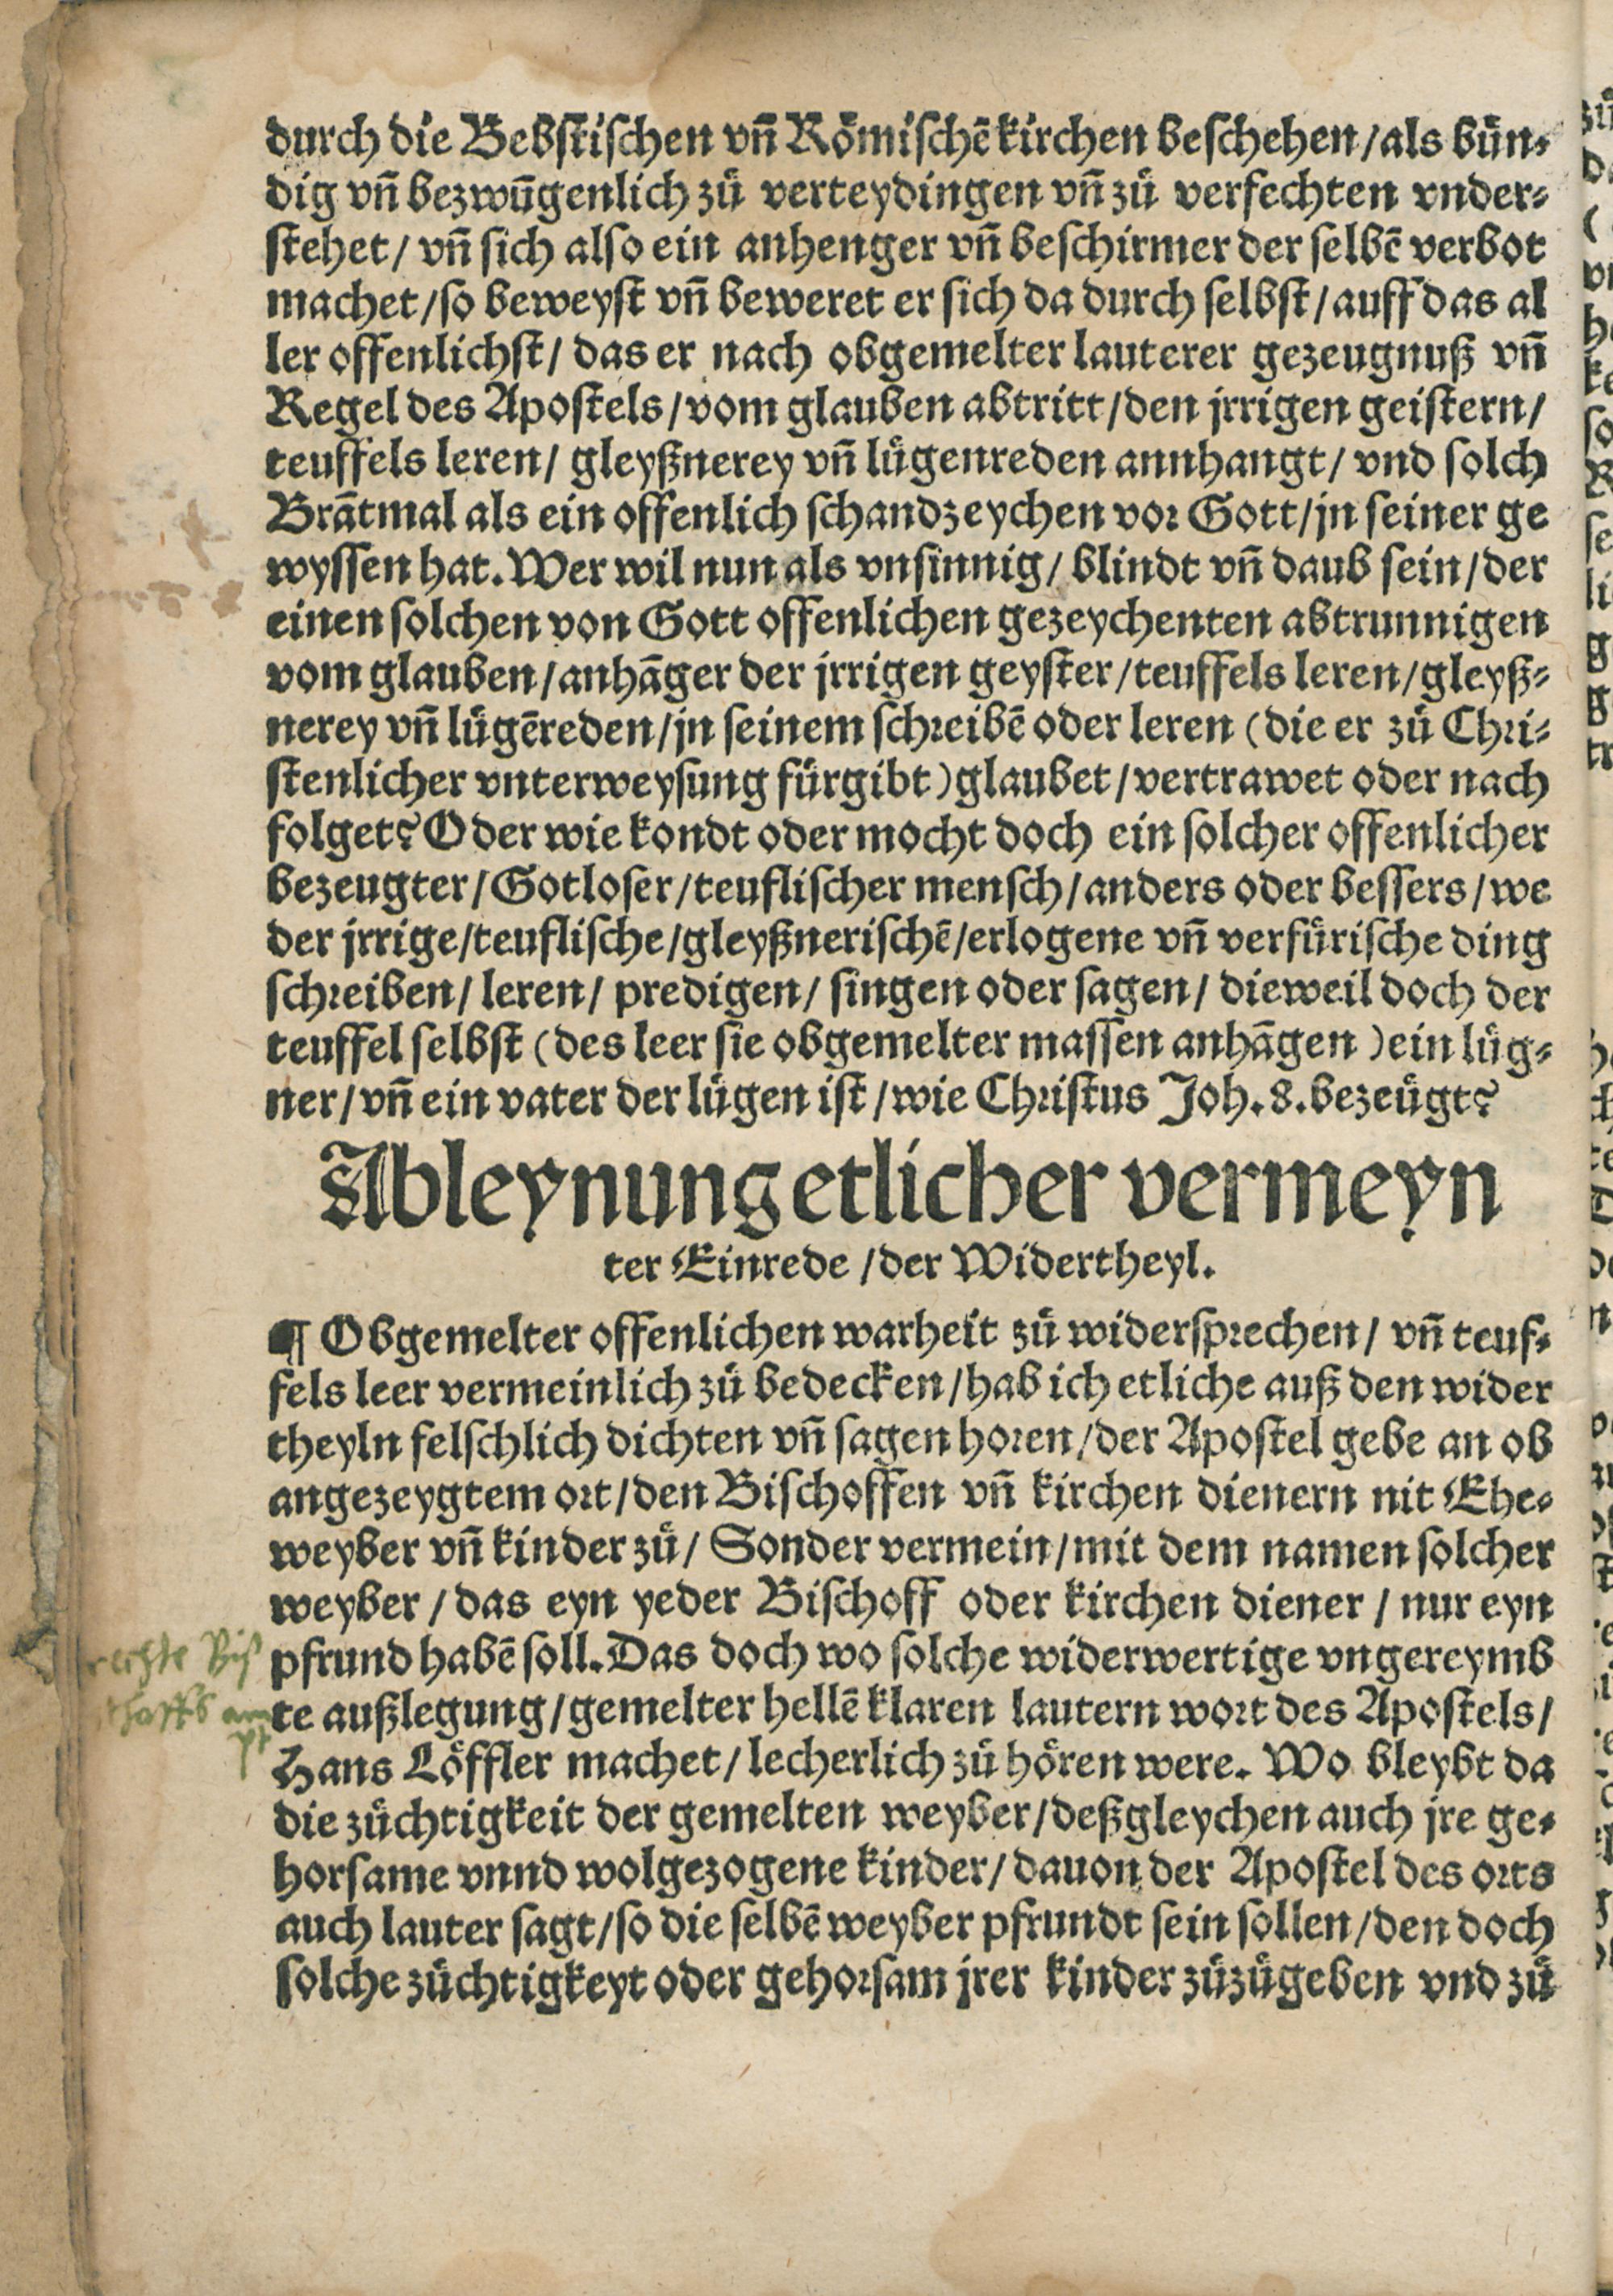 durch die Bebstischen vñ Römischē kirchen beschehen/als bün⸗
dig vñ bezwūgenlich zů verteydingen vñ zů verfechten vnder⸗
stehet/ vñ sich also ein anhenger vñ beschirmer der selbē verbot
machet/so beweyst vñ beweret er sich da durch selbst/auff das al
ler offenlichst/ das er nach obgemelter lauterer gezeugnuß vñ
Regel des Apostels/vom glauben abtritt/den jrrigen geistern/
teuffels leren/ gleyßnerey vñ lügenreden annhangt/ vnd solch
Brātmal als ein offenlich schandzeychen vor Gott/jn seiner ge
wyssen hat. Wer wil nun als vnsinnig/ blindt vñ daub sein/der
einen solchen von Gott offenlichen gezeychenten abtrunnigen
vom glauben/anhāger der jrrigen geyster/teuffels leren/gleyß⸗
nerey vñ lügēreden/jn seinem schreibē oder leren (die er zů Chri⸗
stenlicher vnterweysung fürgibt) glaubet/vertrawet oder nach
folget? Oder wie kondt oder mocht doch ein solcher offenlicher
bezeugter/Gotloser/teuflischer mensch/anders oder bessers/we
der jrrige/teuflische/gleyßnerischē/erlogene vñ verfürische ding
schreiben/ leren/ predigen/ singen oder sagen/ dieweil doch der
teuffel selbst (des leer sie obgemelter massen anhāgen) ein lüg⸗
ner/vñ ein vater der lügen ist/wie Christus Joh. 8. bezeügt?
Ableynung etlicher vermeyn
ter Einrede/der Widertheyl.
¶ Obgemelter offenlichen warheit zů widersprechen/ vñ teuf⸗
fels leer vermeinlich zů bedecken/hab ich etliche auß den wider
theyln felschlich dichten vñ sagen horen/der Apostel gebe an ob
angezeygtem ort/den Bischoffen vñ kirchen dienern nit Ehe⸗
weyber vñ kinder zů/ Sonder vermein/mit dem namen solcher
weyber/das eyn yeder Bischoff oder kirchen diener/nur eyn
pfrund habē soll. Das doch wo solche widerwertige vngereymb
te außlegung/gemelter hellē klaren lautern wort des Apostels/
Hans Löffler machet/lecherlich zů hören were. Wo bleybt da
die züchtigkeit der gemelten weyber/deßgleychen auch jre ge⸗
horsame vnnd wolgezogene kinder/dauon der Apostel des orts
auch lauter sagt/so die selbē weyber pfrundt sein sollen/den doch
solche züchtigkeyt oder gehorsam jrer kinder zůzůgeben vnd zů
rechte Biß
thoffs am
pt